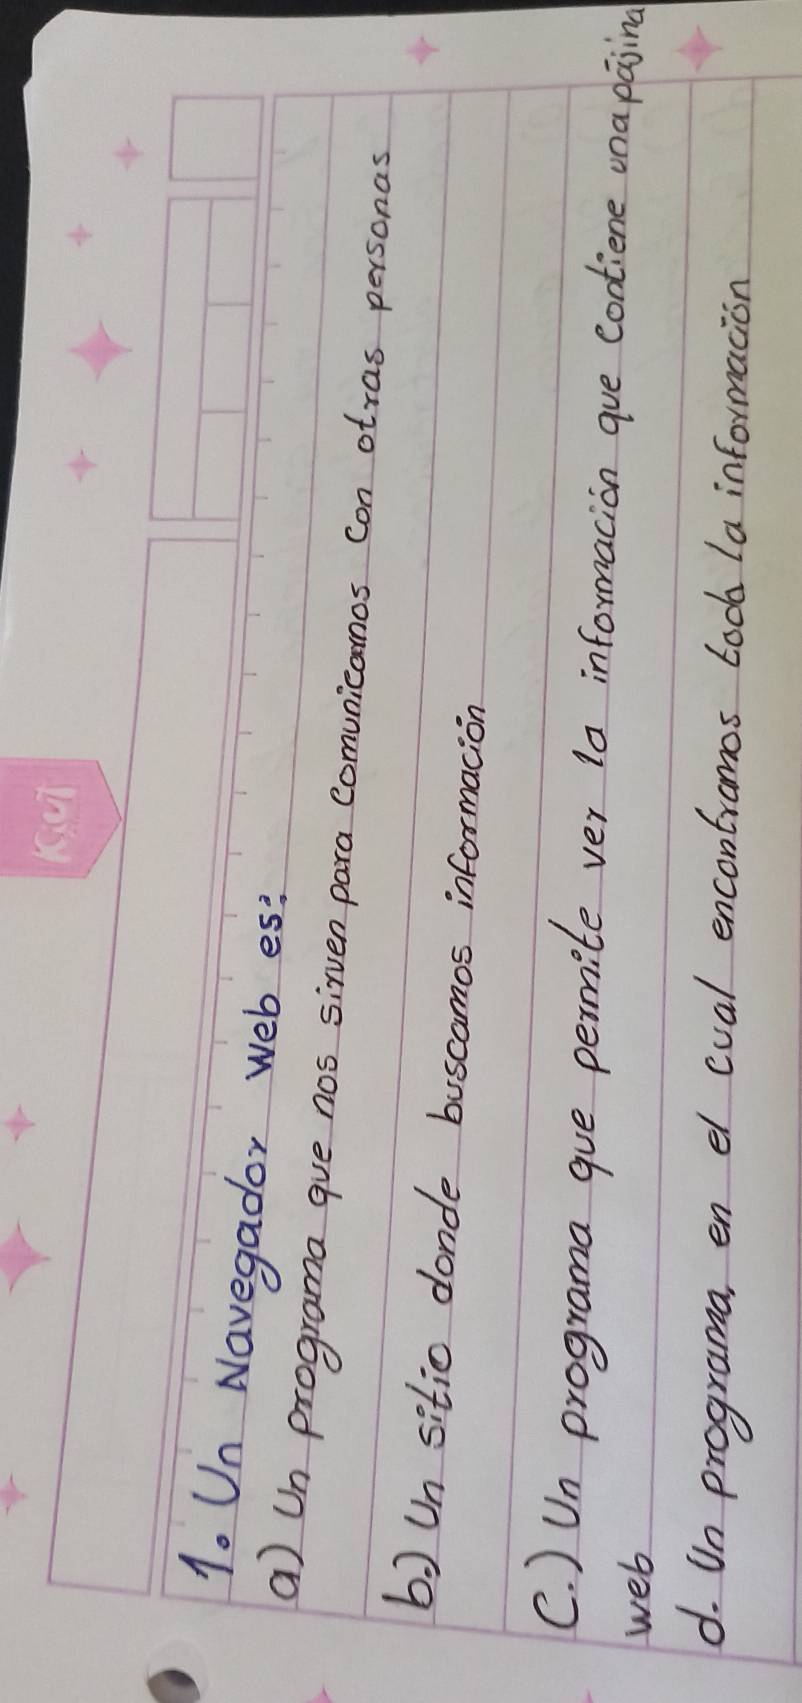 Kiut
1. Un Navegador web es:
a) Un programa que nos sirven para comunicarnos con otras personas
b.) Un sitio donde buscamos información
C.) Un programa que permite ver la información que contiene una pájina
web
d. Un programa, en el cual encontramos toda la información